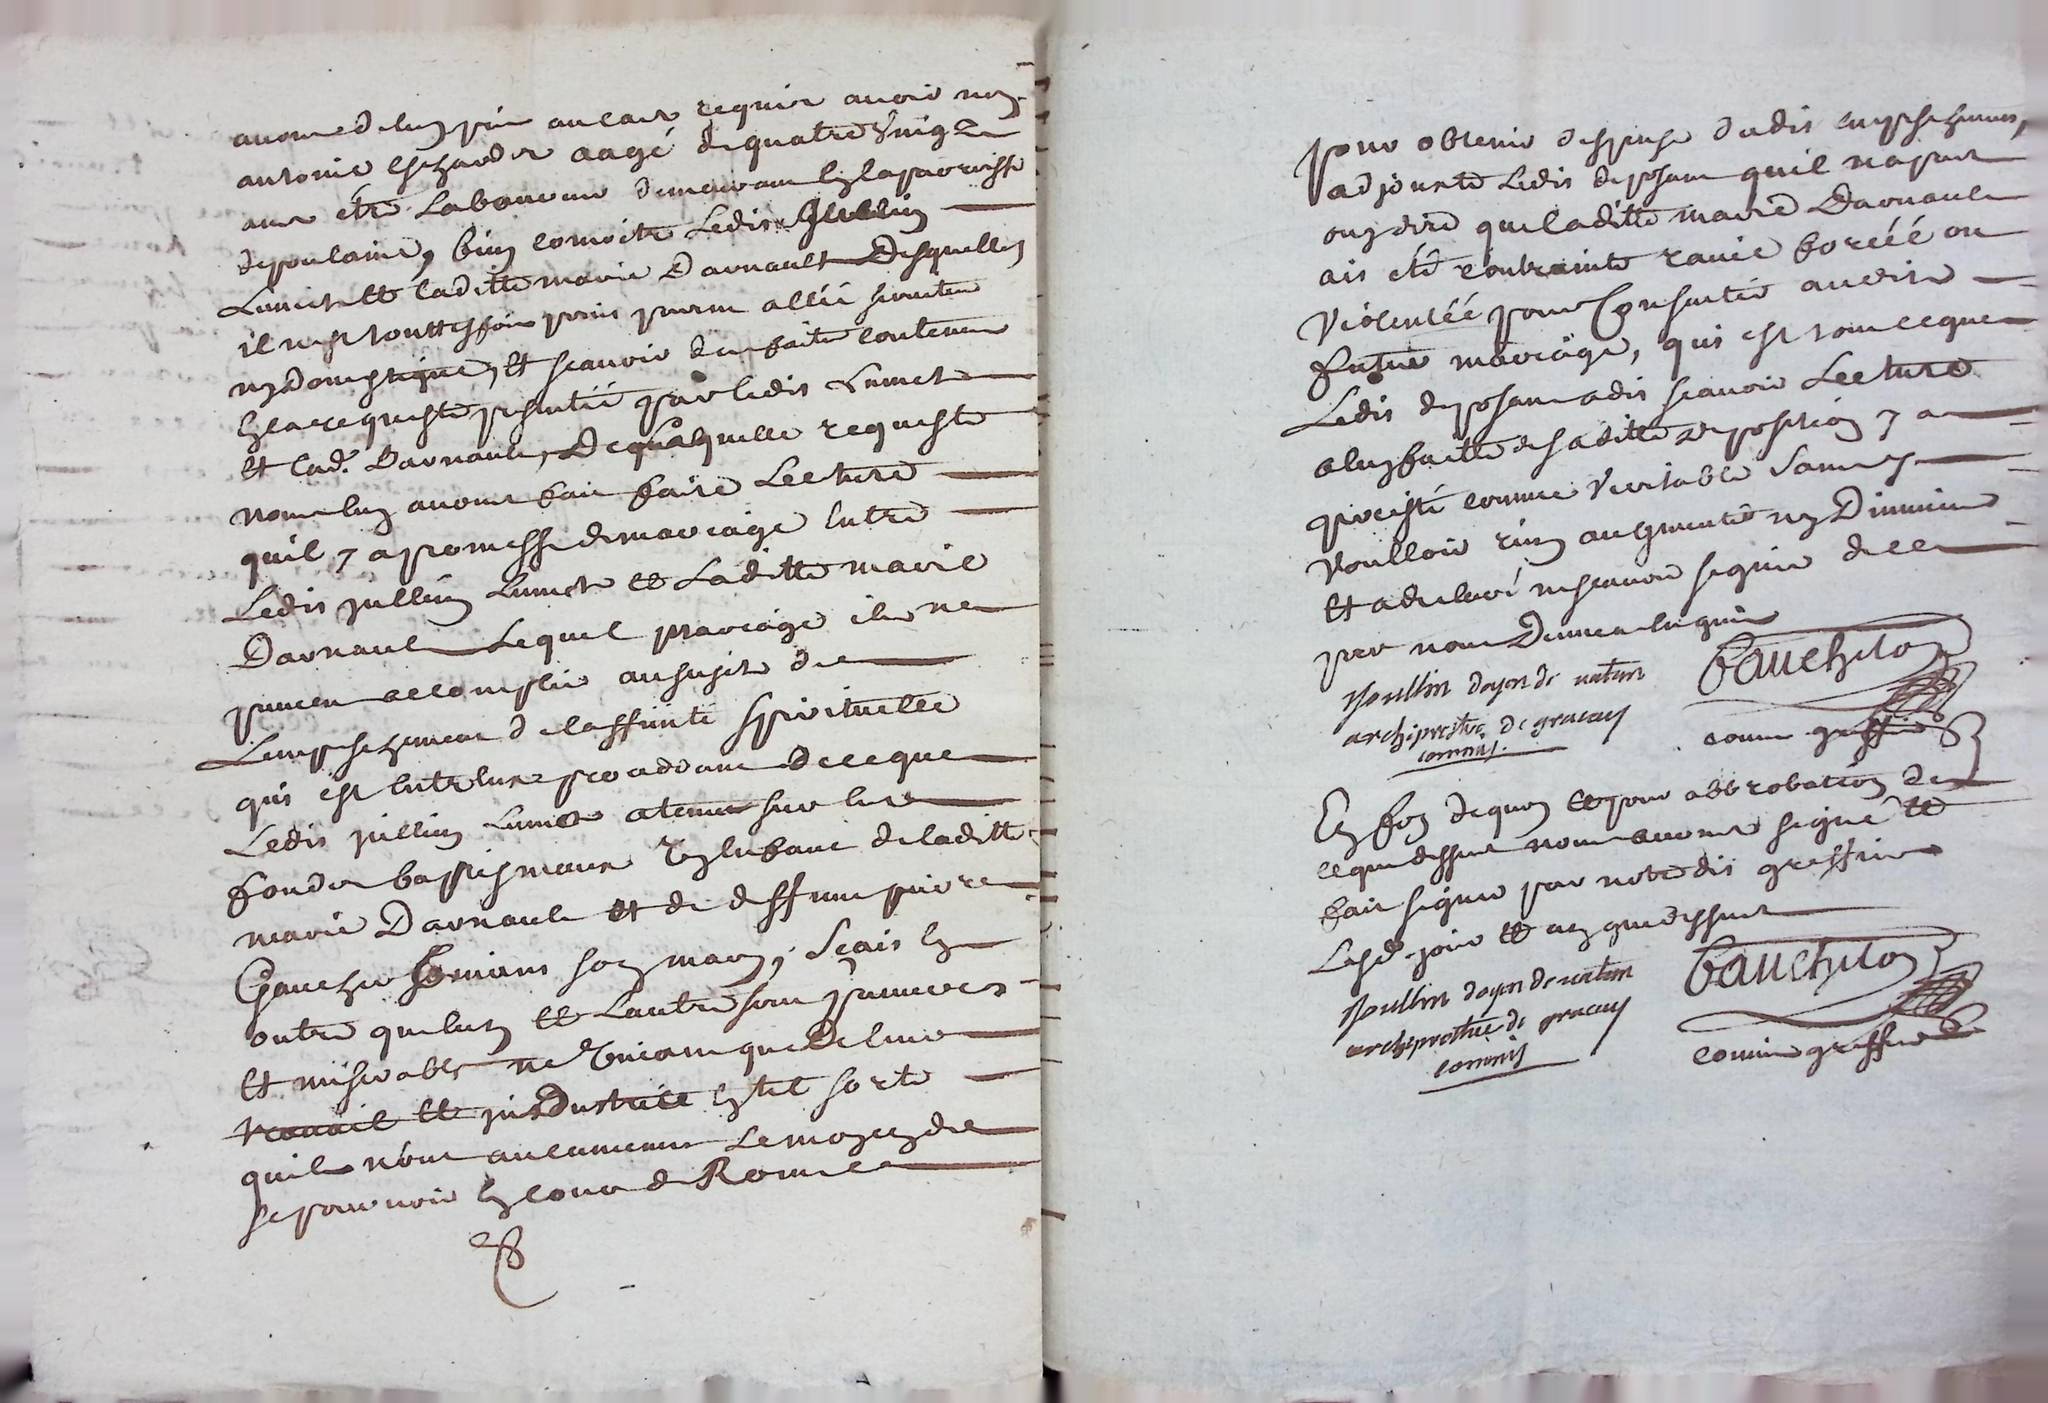 avons de luy pris au cas requis avoir nom
antoine agé de quatre vingt
ans être Laboureur demeurant en la parroisse
de poulaine, bien connoitre Ledit Jullien
Lumet et laditte marie Darnault Desquelles
il nest touttesfois parens allié serviteur
ny domestique, et scavoir des faits contenus
en la requeste presentée par ledit Lumet
et lad. Darnault, De laquelle requeste
nous luy avons fait faire Lecture
quil y a promesse de mariage entre
Ledit jullien Lumet et Laditte marie
Darnault Lequel mariage ils ne
peuvent accomplir au sujet de
Lempeschement de laffinité spirituelle
qui est entre eux procedant de ce que
Ledit jullien Lumet a tenu sur les
fonds baptismaux un enfant de laditte
marie Darnault et de deffunt pierre
son mary, Scait en
outre que luy et Lautre sont pauvres
et miserables ne vivant que de leur
travail et industrie en tel sorte
quils nont aucunement Le moyen de
se pourvoir en cour de Rome
pour obtenir dispense dudit empeschement,
adjouste Ledit deposant quil na pas
ouy dire que laditte marie Darnault
ait été contrainte ravie forcéé ou
violentéé pour Consentir audit
futur mariage, qui est tout ce que
Ledit deposant a dit scavoir Lecture
a luy faitte de saditte deposition y a
percisté comme veritable sans y
voulloir rien augmenter ny Diminuer
et a declaré ne scavoir signer de ce
par nous Deument enquis
Poullin doyen de vatan
archiprestre de gracay
commis.
Bauchetoy
commis greffier
En foy de quoy et pour abbrobation de
ce que dessus nous avons signé et
fait signer par notredit greffier
Lesd. jour et an que dessus
Poullin doyen de vatan
archiprestre de gracay
commis
Bauchetoy
commis greffier